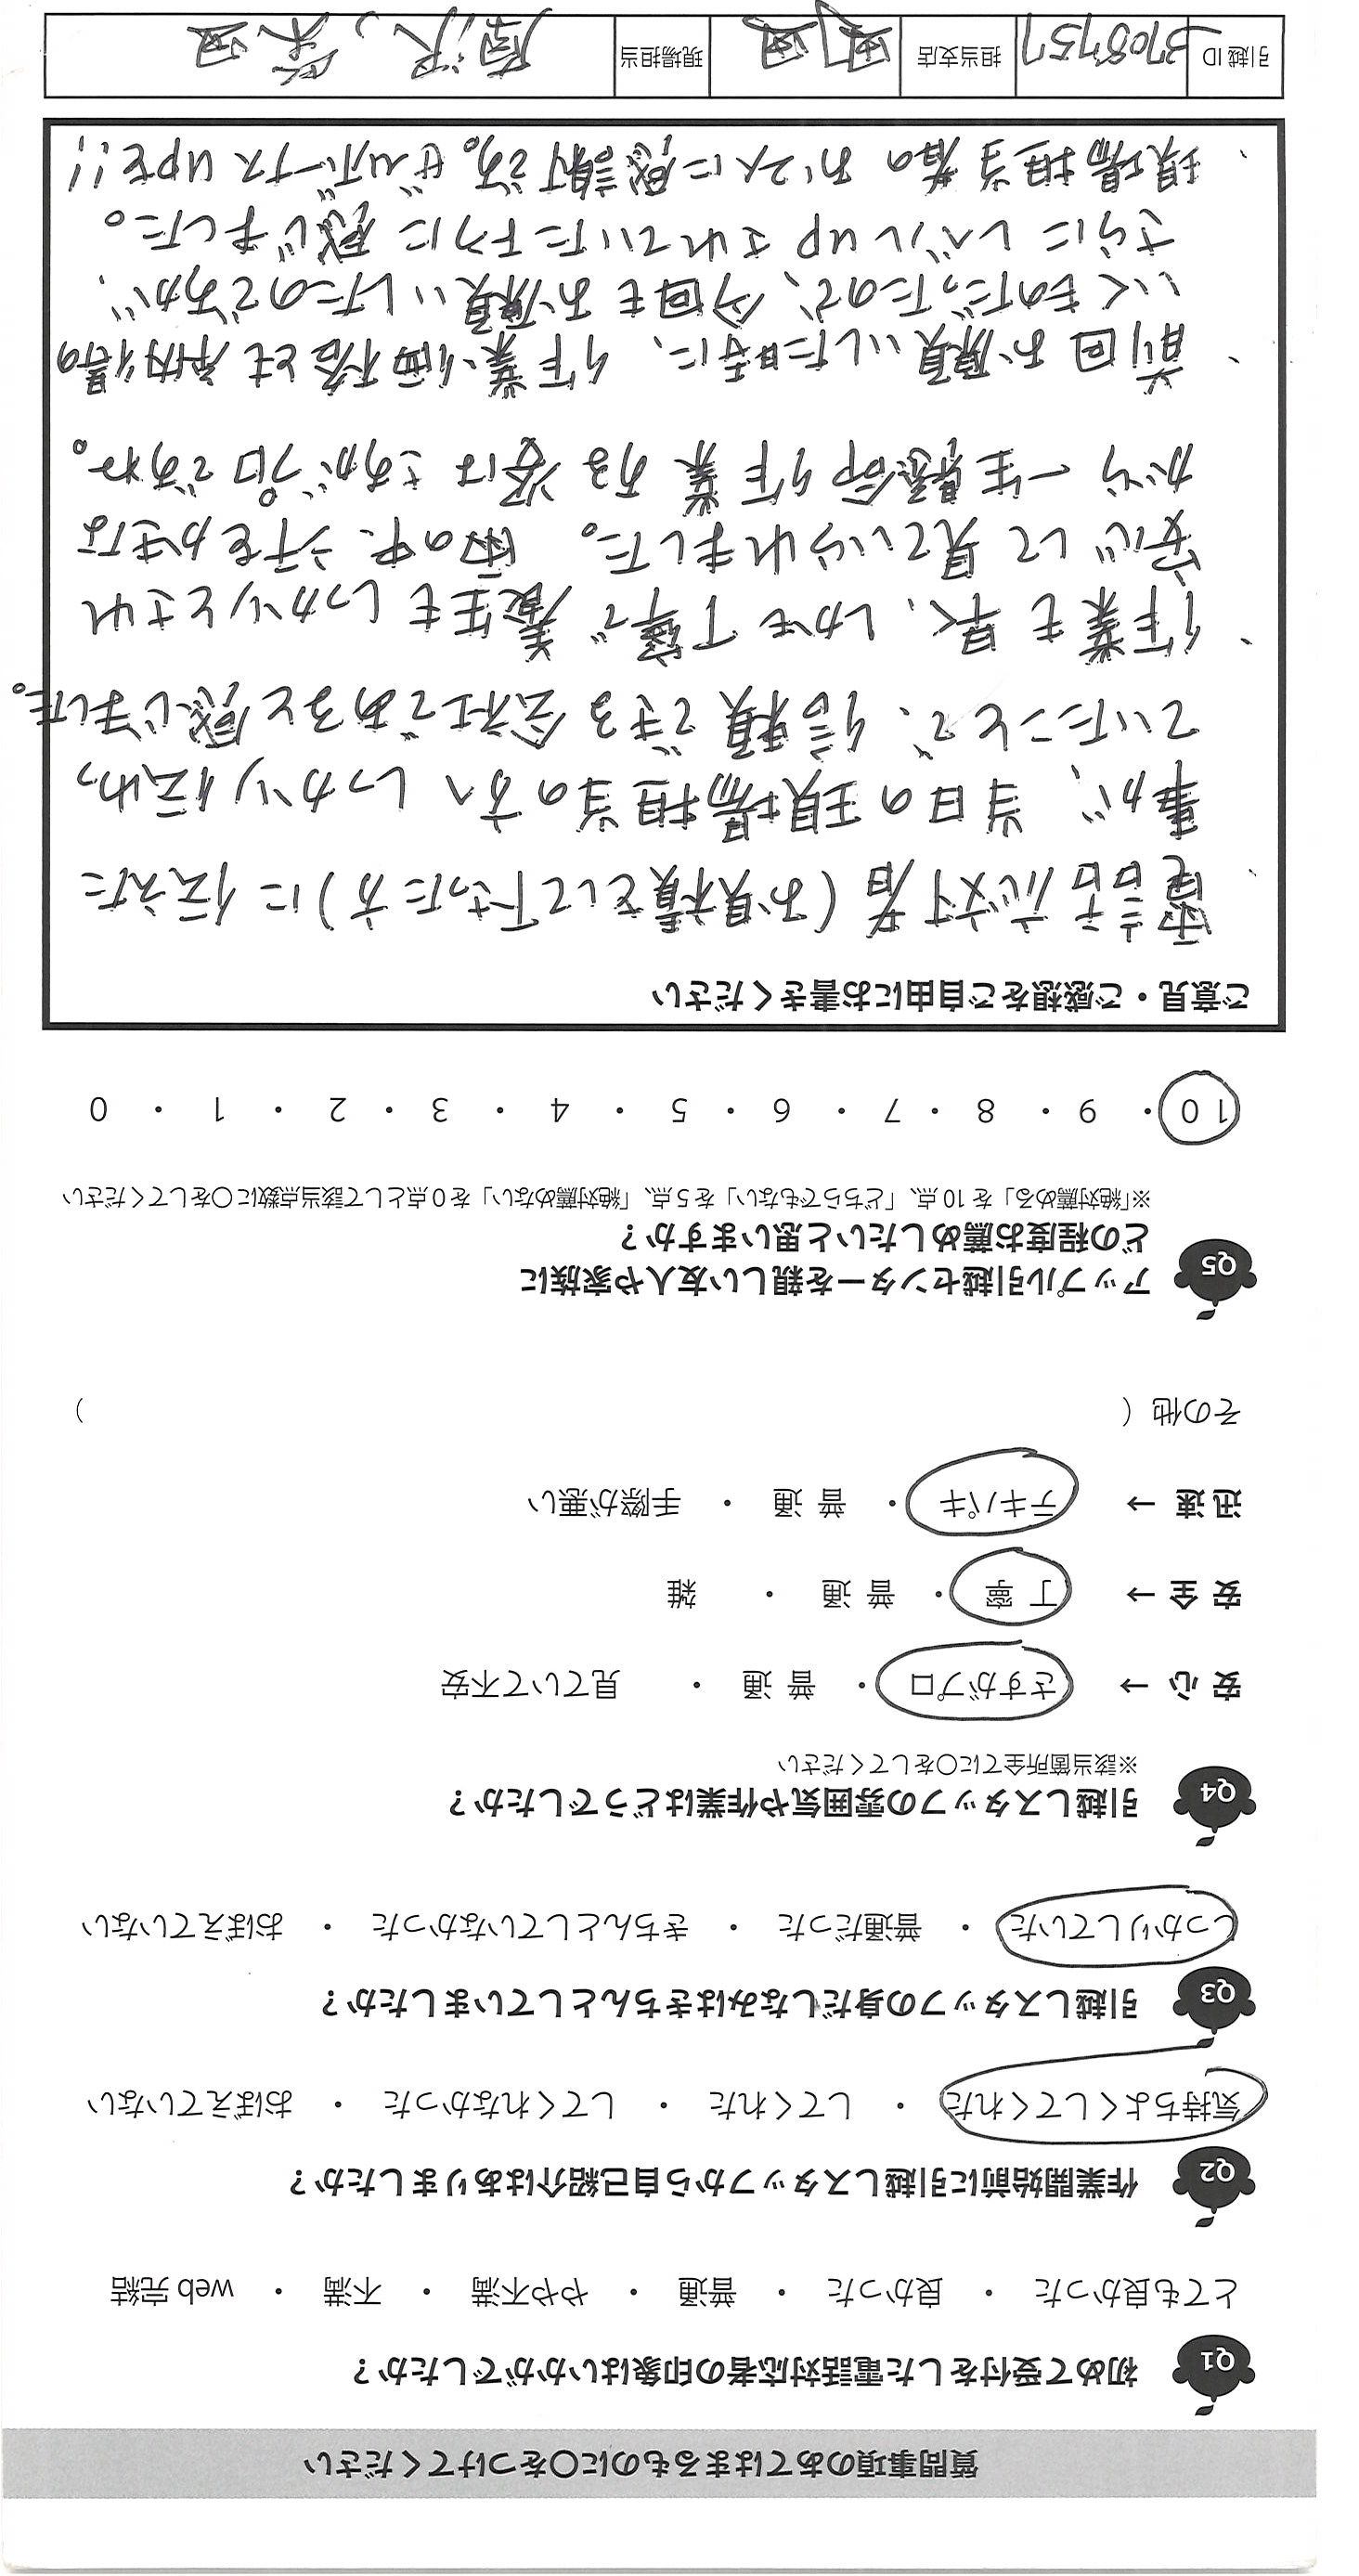 質問事項のあてはまるものに〇をつけてください
Q1 初めて受付をした電話対応者の印象はいかがでしたか？
とても良かった ・ 良かった ・ 普通 ・ やや不満 ・ 不満 ・ web完結
Q2 作業開始前に引越しスタッフから自己紹介はありましたか？
気持ちよくしてくれた ・ してくれた ・ してくれなかった ・ おぼえていない
Q3 引越しスタッフの身だしなみはきちんとしていましたか？
しっかりしていた ・ 普通だった ・ きちんとしていなかった ・ おぼえていない
Q4 引越しスタッフの雰囲気や作業はどうでしたか？
※該当箇所全てに〇をしてください
安心→ さすがプロ ・ 普通 ・ 見ていて不安
安全→ 丁寧 ・ 普通 ・ 雑
迅速→ テキパキ ・ 普通 ・ 手際が悪い
その他（ ）
Q5 アップル引越センターを親しい友人や家族に
どの程度お薦めしたいと思いますか？
※「絶対薦める」を10点、「どちらでもない」を5点、「絶対薦めない」を0点として該当点数に〇をしてください
10 ・ 9 ・ 8 ・ 7 ・ 6 ・ 5 ・ 4 ・ 3 ・ 2 ・ 1 ・ 0
ご意見・ご感想をご自由にお書きください
・電話応対者（お見積をして下さった方）に伝えた
事が、当日の現場担当の方へしっかり伝わっ
ていたことで、信頼できる会社であると感じました。
・作業も早く、しかも丁寧で養生もしっかりとされ
安心して見ていられました。雨の中、汗をかきな
がら一生懸命作業する姿はさすがプロですね。
・前回お願いした時に、作業、価格とも納得の
いくものだったので、今回もお願いしたのですが、
さらにレベルupされていたように感じました。
・現場担当者のお2人に感謝です。ぜひボーナスupを!!
引越ID 3708757 担当支店 町田 現場担当